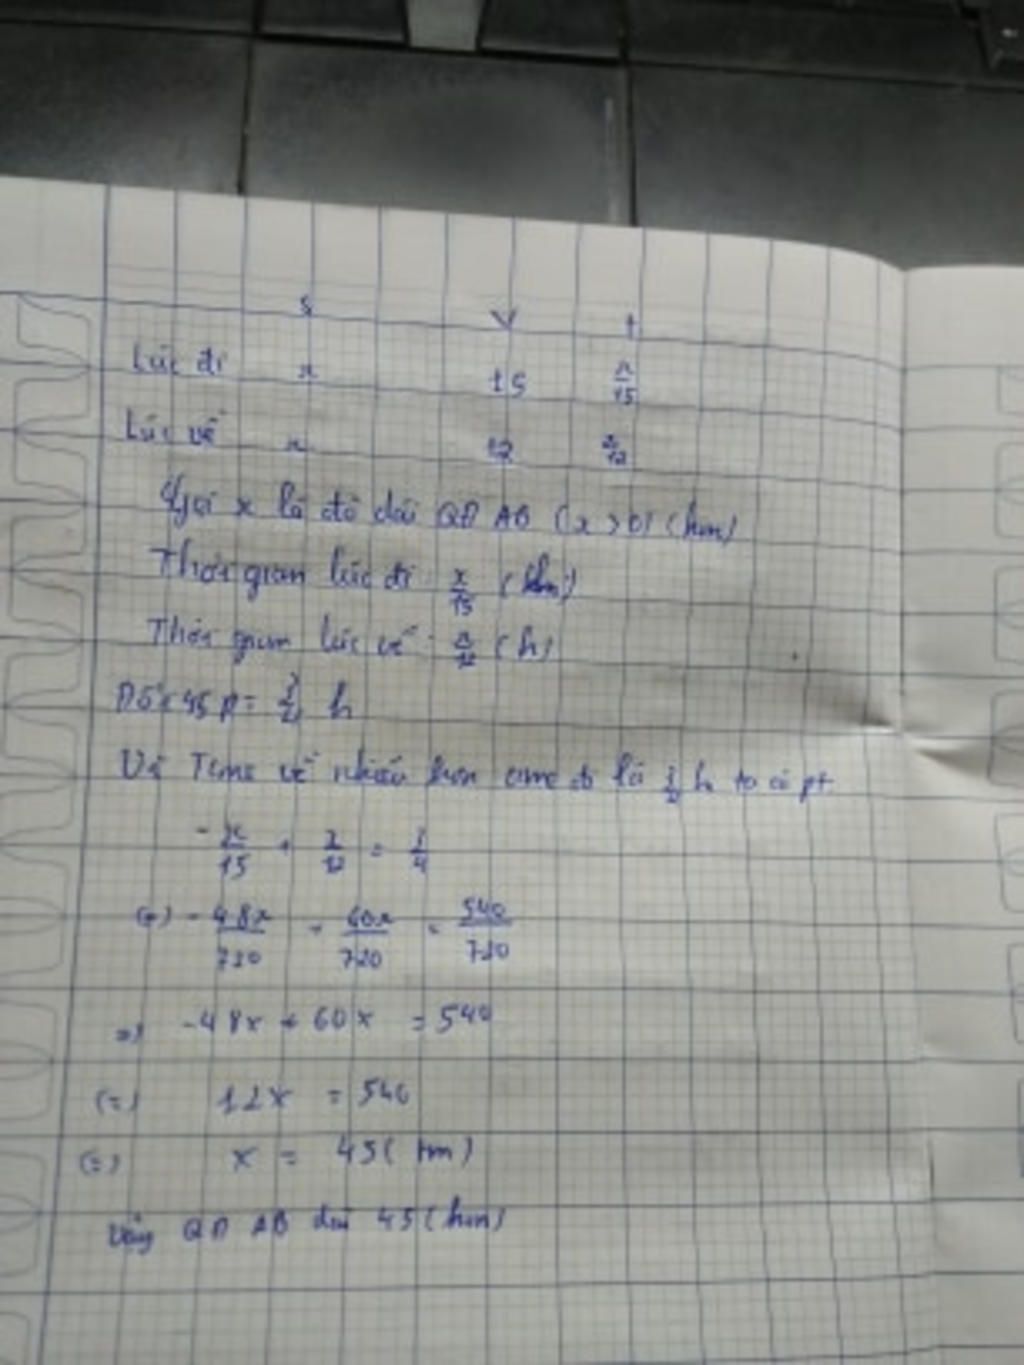 S V t
Lúc đi x 15 x/15
Lúc về x 12 x/12
Gọi x là độ dài QĐ AB (x > 0) (km)
Thời gian lúc đi : x/15
Thời gian lúc về : x/12 (h)
Đổi 45 p = 3/4 h
Vì Time về nhiều hơn time đi là 3/4 h ta có pt
- x/15 + x/12 = 3/4
(=) - 48x/720 + 60x/720 = 540/720
=) -48x + 60x = 540
(=) 12x = 540
(=) x = 45 (tm)
Vậy QĐ AB dài 45 (km)